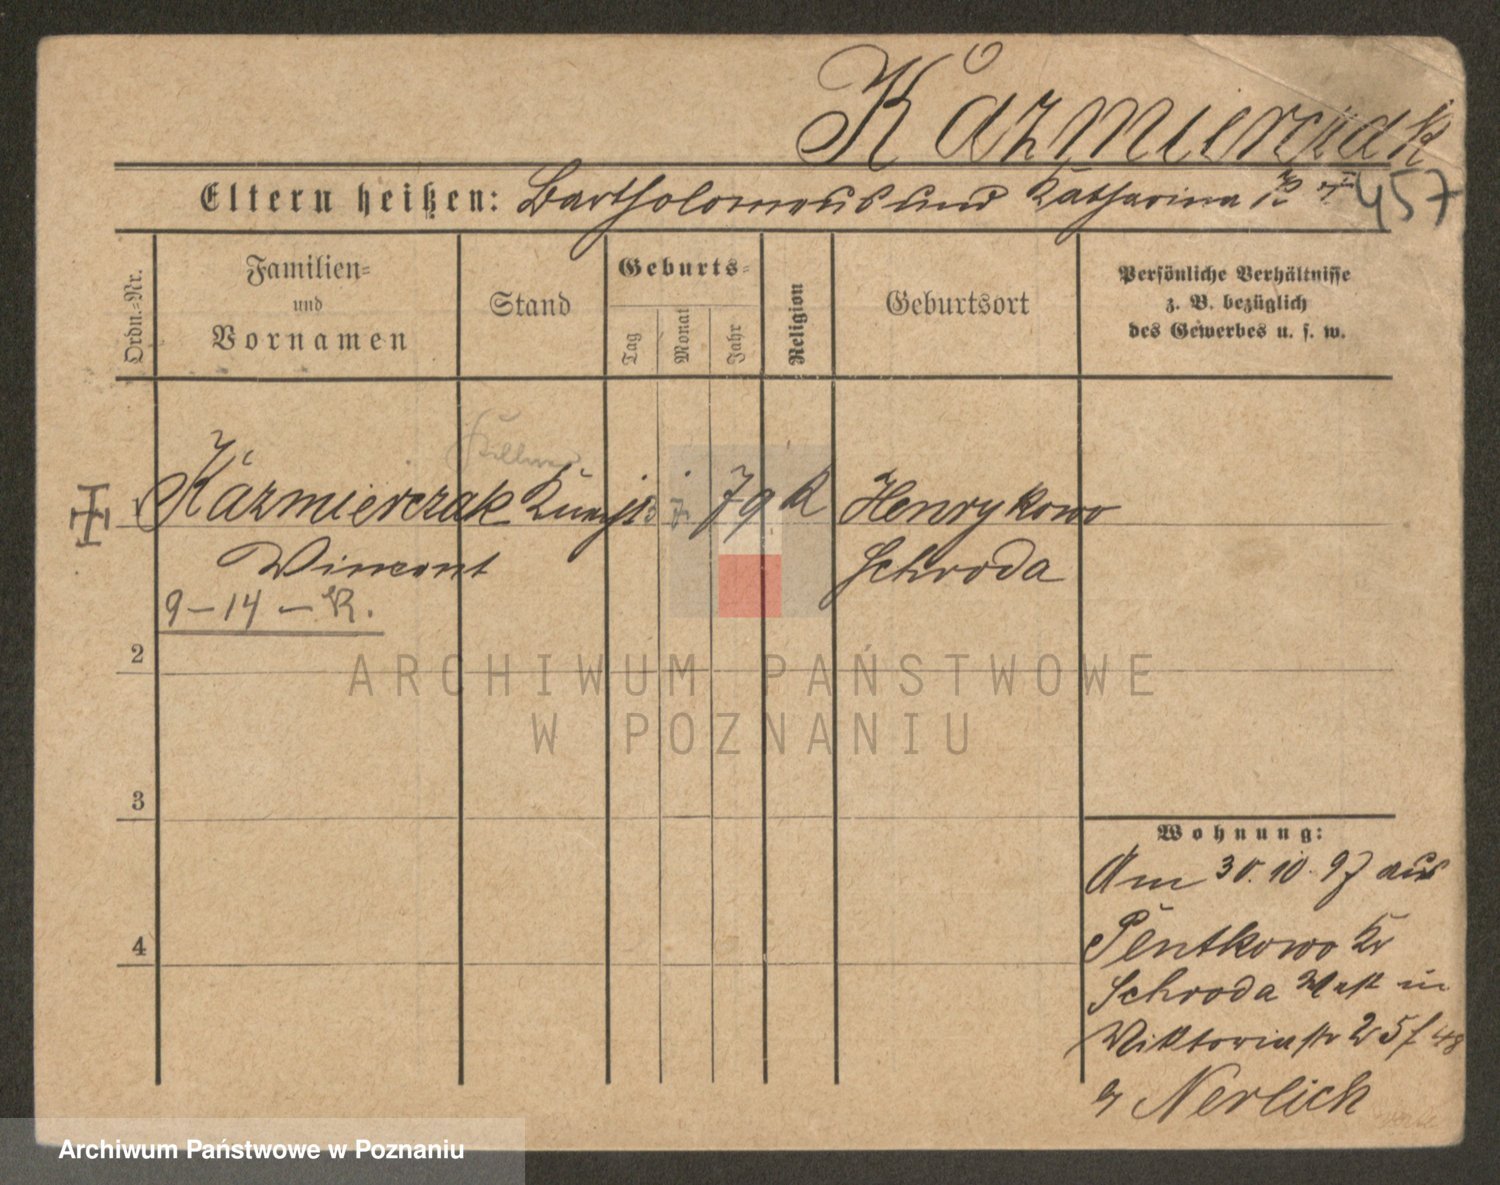 Kaźmierczak
Eltern heißen: Bartholomeus und Katharina
457
Ordn.-Nr.
Familien-
und
Vornamen
Stand
Geburts-
Tag
Monat
Jahr
Religion
Geburtsort
Persönliche Verhältnisse
z. B. bezüglich
des Gewerbes u. s. w.
Kaźmierczak 79 K Henrykowo
Vincent Schroda
9-14-R.
2
3
4
Wohnung:
Am 30.10.97 aus
Pentkowo Kr
Schroda in
Viktoriastr 25
Nerlich
ARCHIWUM PAŃSTWOWE
W POZNANIU
Archiwum Państwowe w Poznaniu